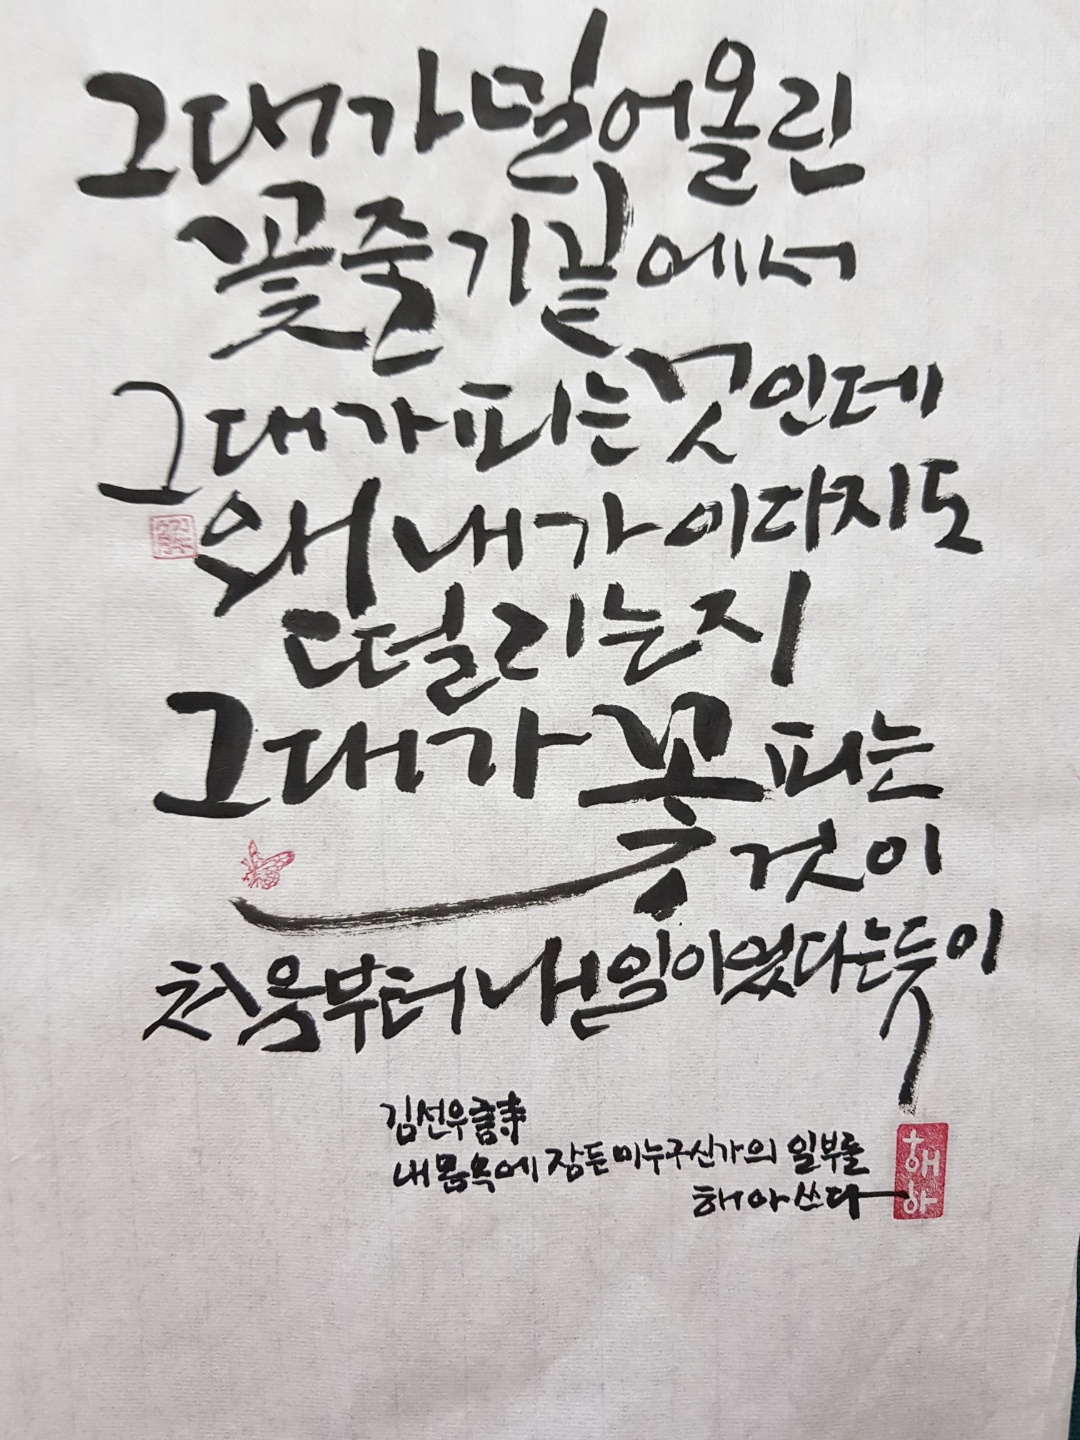 그대가 밀어올린
꽃줄기 끝에서
그대가 피는 것인데
왜 내가 이다지도
떨리는지
그대가 꽃피는
것이
처음부터 내 일이었다는 듯이
김선우 詩
내 몸속에 잠든 이 누구신가의 일부를
해아 쓰다
해아